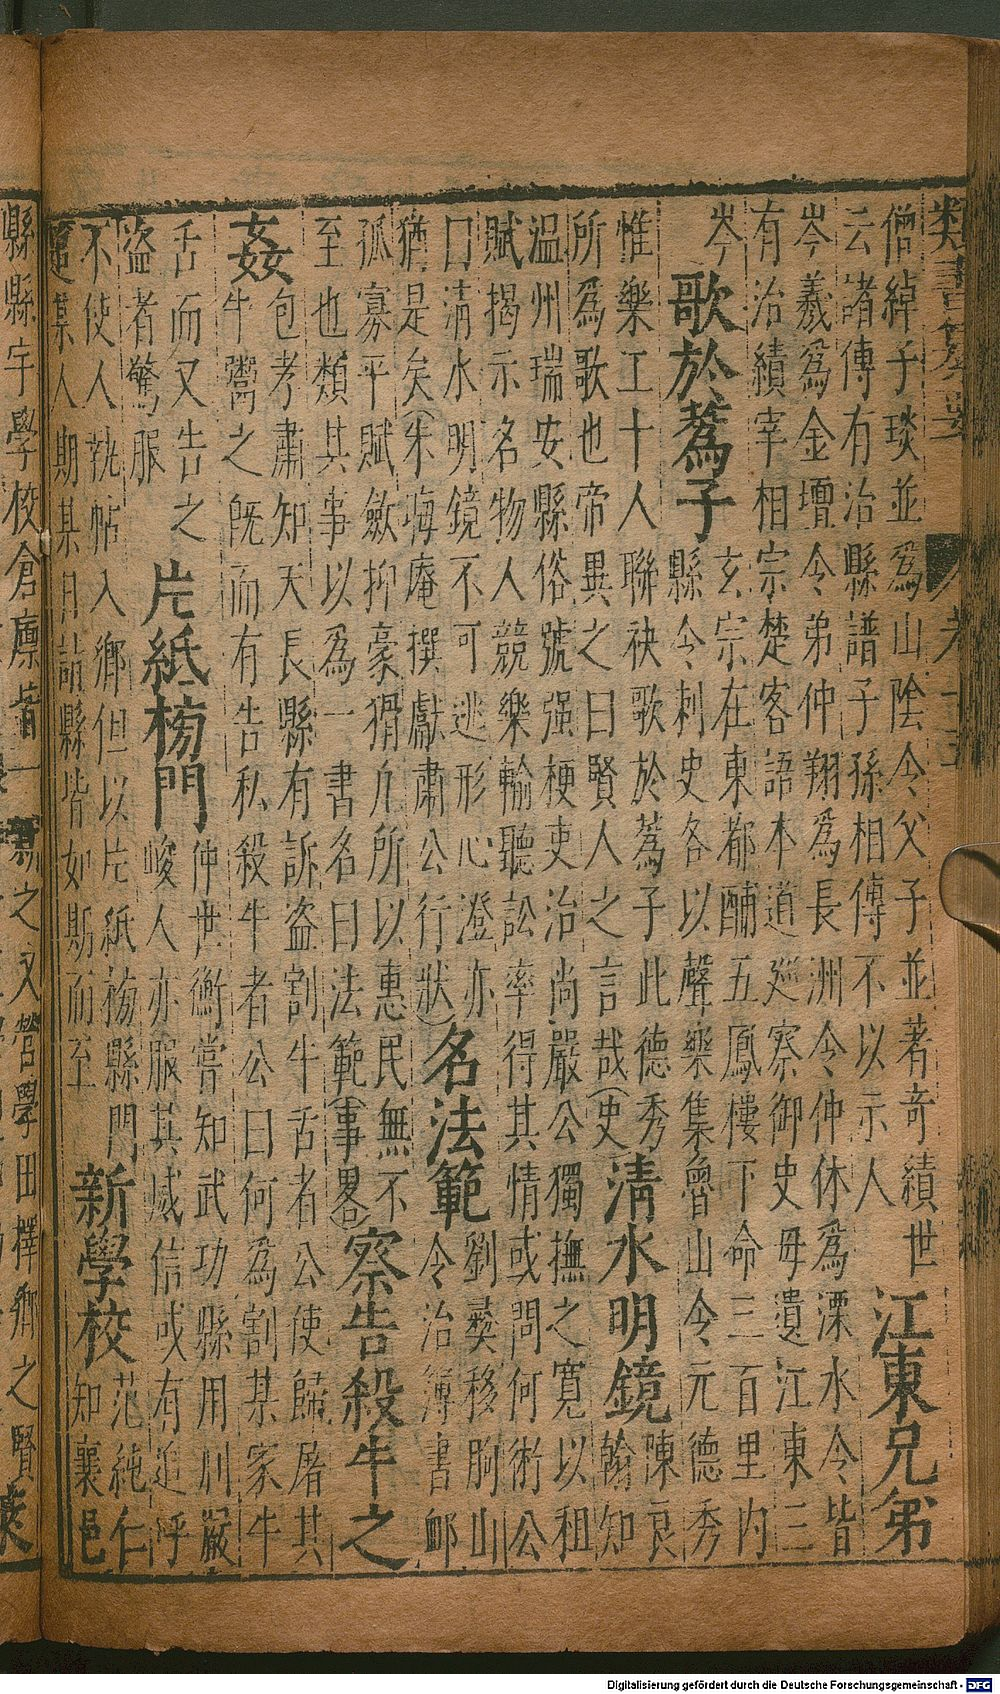 僧綽子琰並爲山陰令父子並著奇績世
云諸傳有治縣譜子孫相傳不以示人
江東兄弟
岑羲爲金壇令弟仲翔爲長洲令仲休爲溧水令皆
有治績宰相宗楚客語本道巡察御史毋遺江東三
岑
歌於蔿子
玄宗在東都酺五鳳樓下命三百里內
縣令刺史各以聲樂集魯山令元德秀
惟樂工十人聯袂歌於蔿子此德秀
所爲歌也帝異之曰賢人之言哉(史
清水明鏡
陳良
翰知
温州瑞安縣俗號强梗吏治尚嚴公獨撫之寛以租
賦揭示名物人競樂輸聽訟率得其情或問何術公
曰淸水明鏡不可逃形心澄亦
猶是矣(朱晦庵撰獻肅公行狀)
名法範
劉彞移朐山
令治簿書䘏
孤寡平賦歛抑豪猾凢所以惠民無不
至也類其事以爲一書名曰法範(事畧)
察告殺牛之
姦
包孝肅知天長縣有訴盜割牛舌者公使歸屠其
牛鬻之旣而有告私殺牛者公曰何爲割某家牛
舌而又告之
盜者驚服
片紙榜門
仲世衡嘗知武功縣用刑嚴
峻人亦服其威信或有追呼
不使人執帖入鄉但以片紙榜縣門
某人期某日詣縣皆如期而至
新學校
范純仁
知襄邑
縣縣宇學校倉廪皆一新之又營學田擇鄉之賢
Digitalisierung gefördert durch die Deutsche Forschungsgemeinschaft - DFG